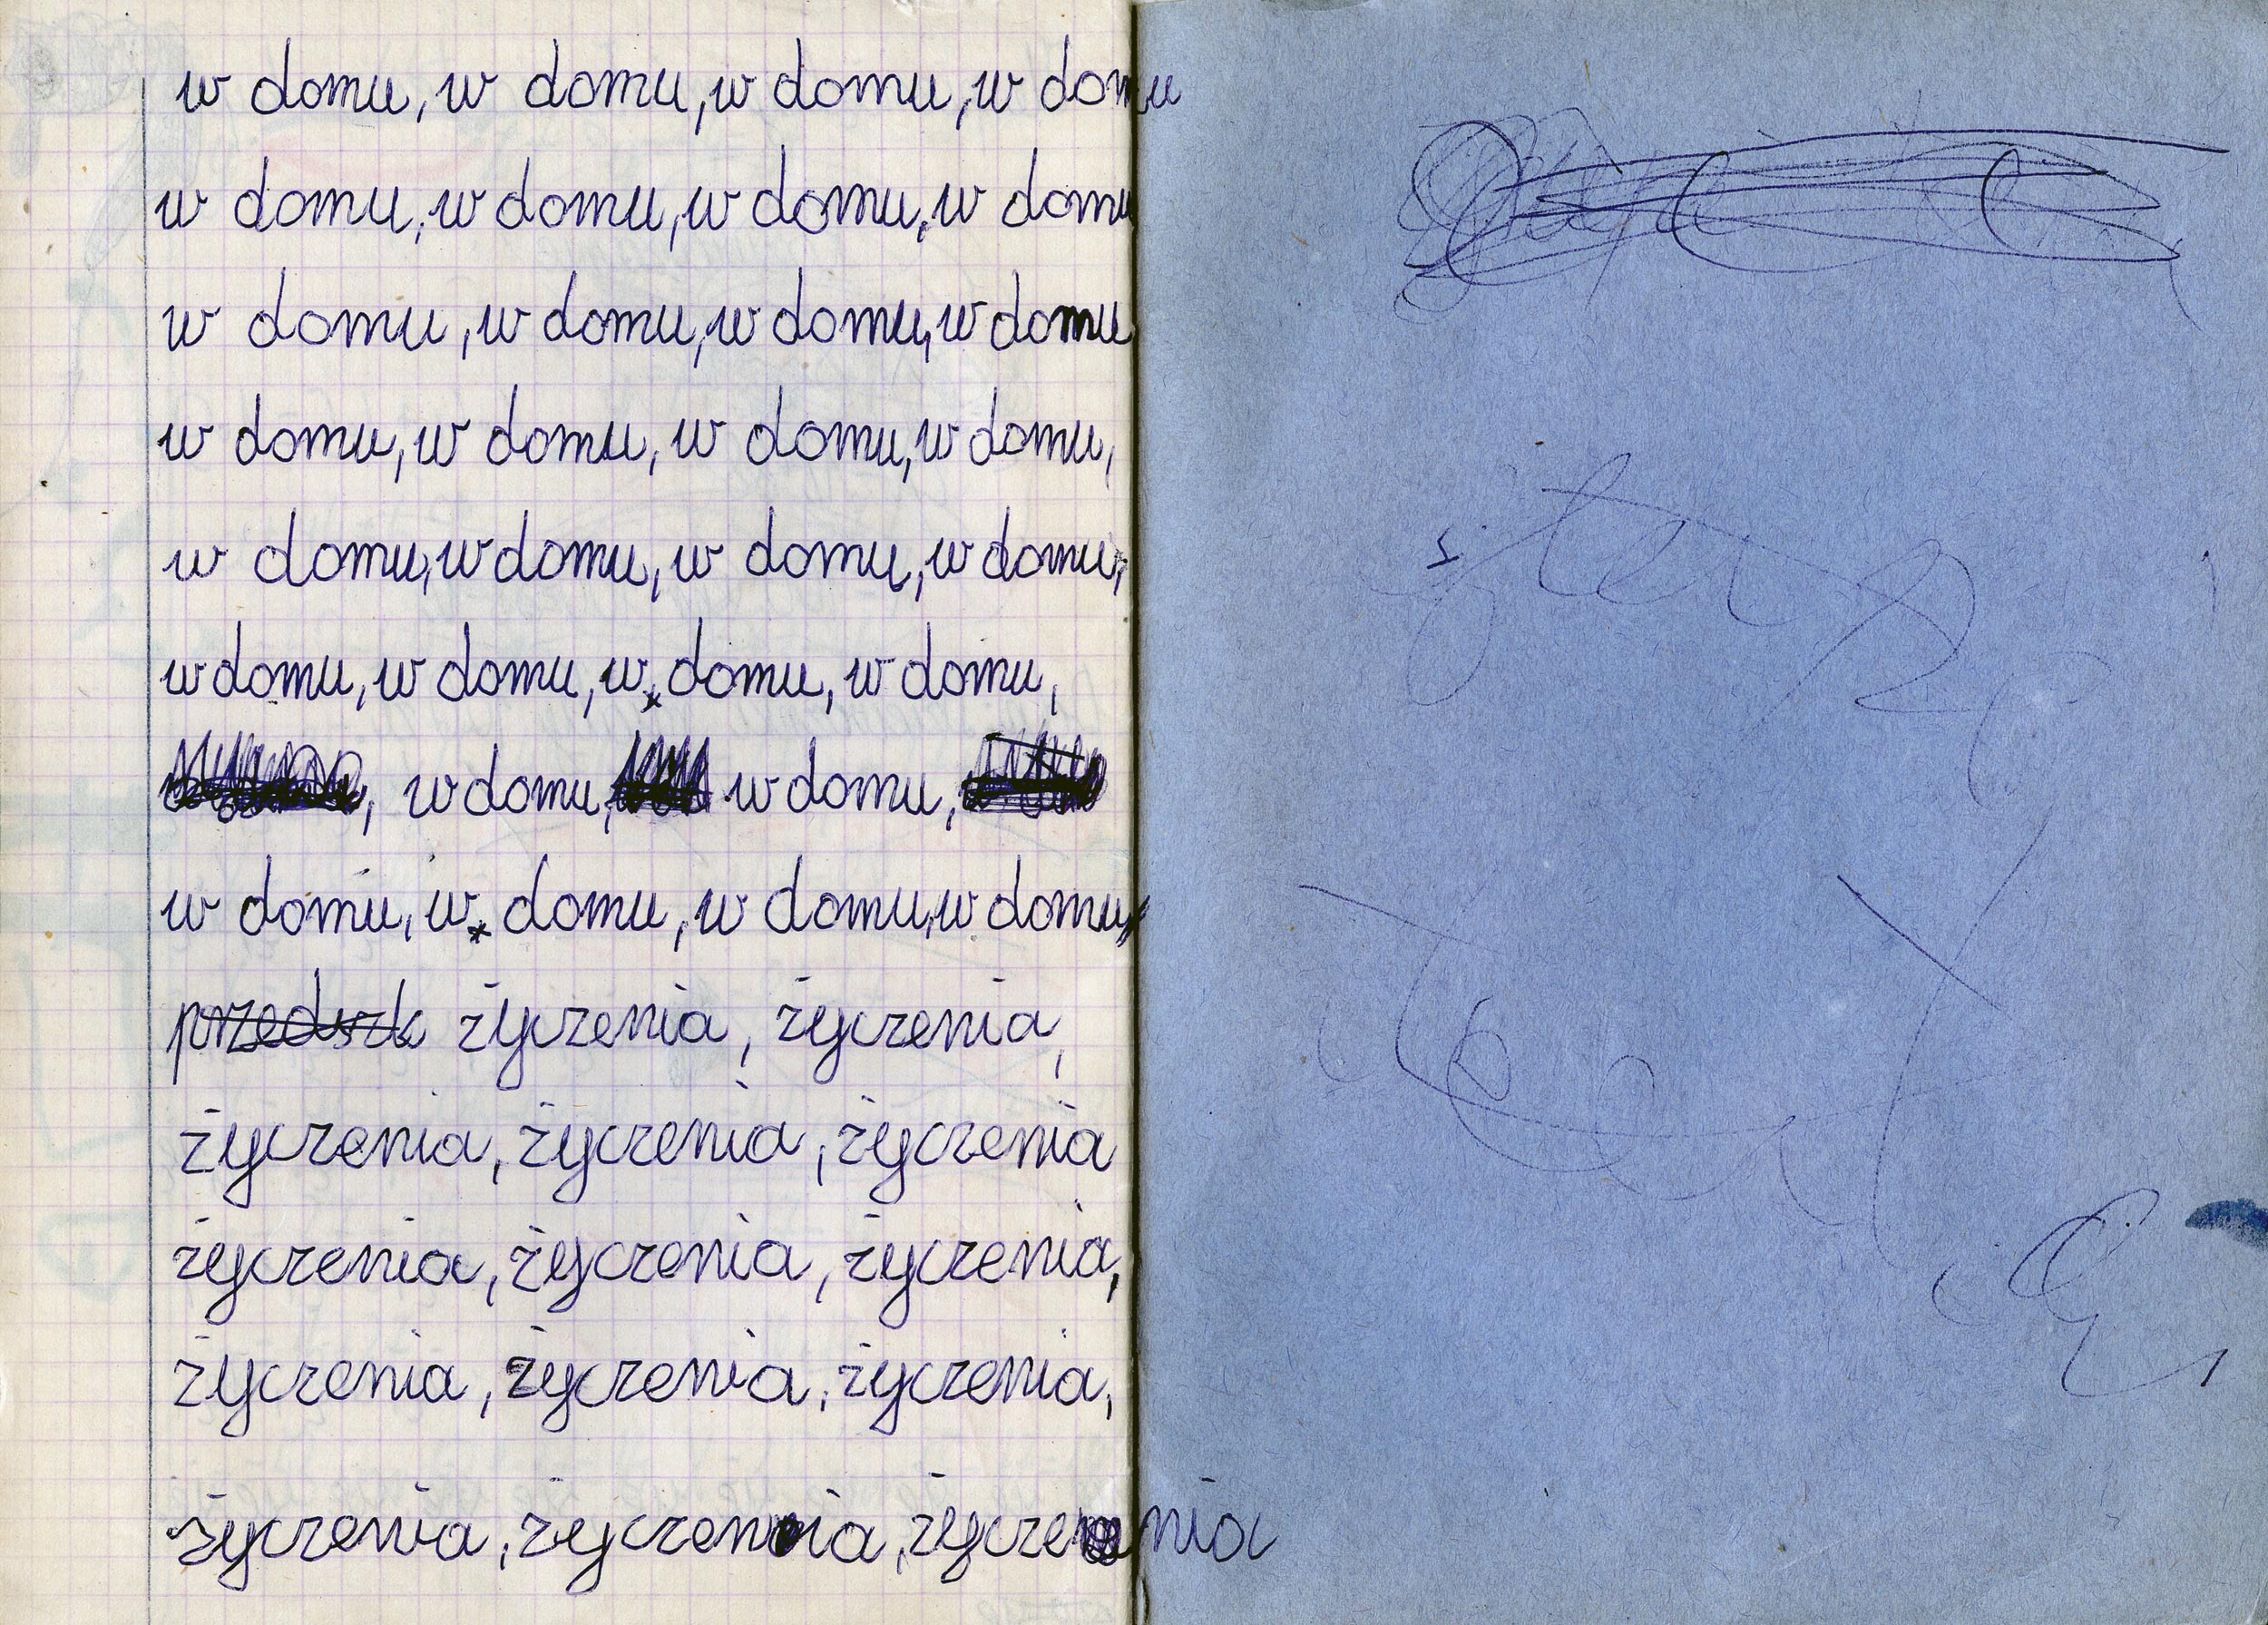 w domu, w domu, w domu, w domu
w domu, w domu, w domu, w domu
w domu, w domu, w domu, w domu
w domu, w domu, w domu, w domu,
w domu, w domu, w domu, w domu,
w domu, w domu, w domu, w domu,
, w domu, w domu,
w domu, w domu, w domu, w domu,
przedszk życzenia, życzenia,
życzenia, życzenia, życzenia
życzenia, życzenia, życzenia,
życzenia, życzenia, życzenia,
życzenia, życzenia, życzenia